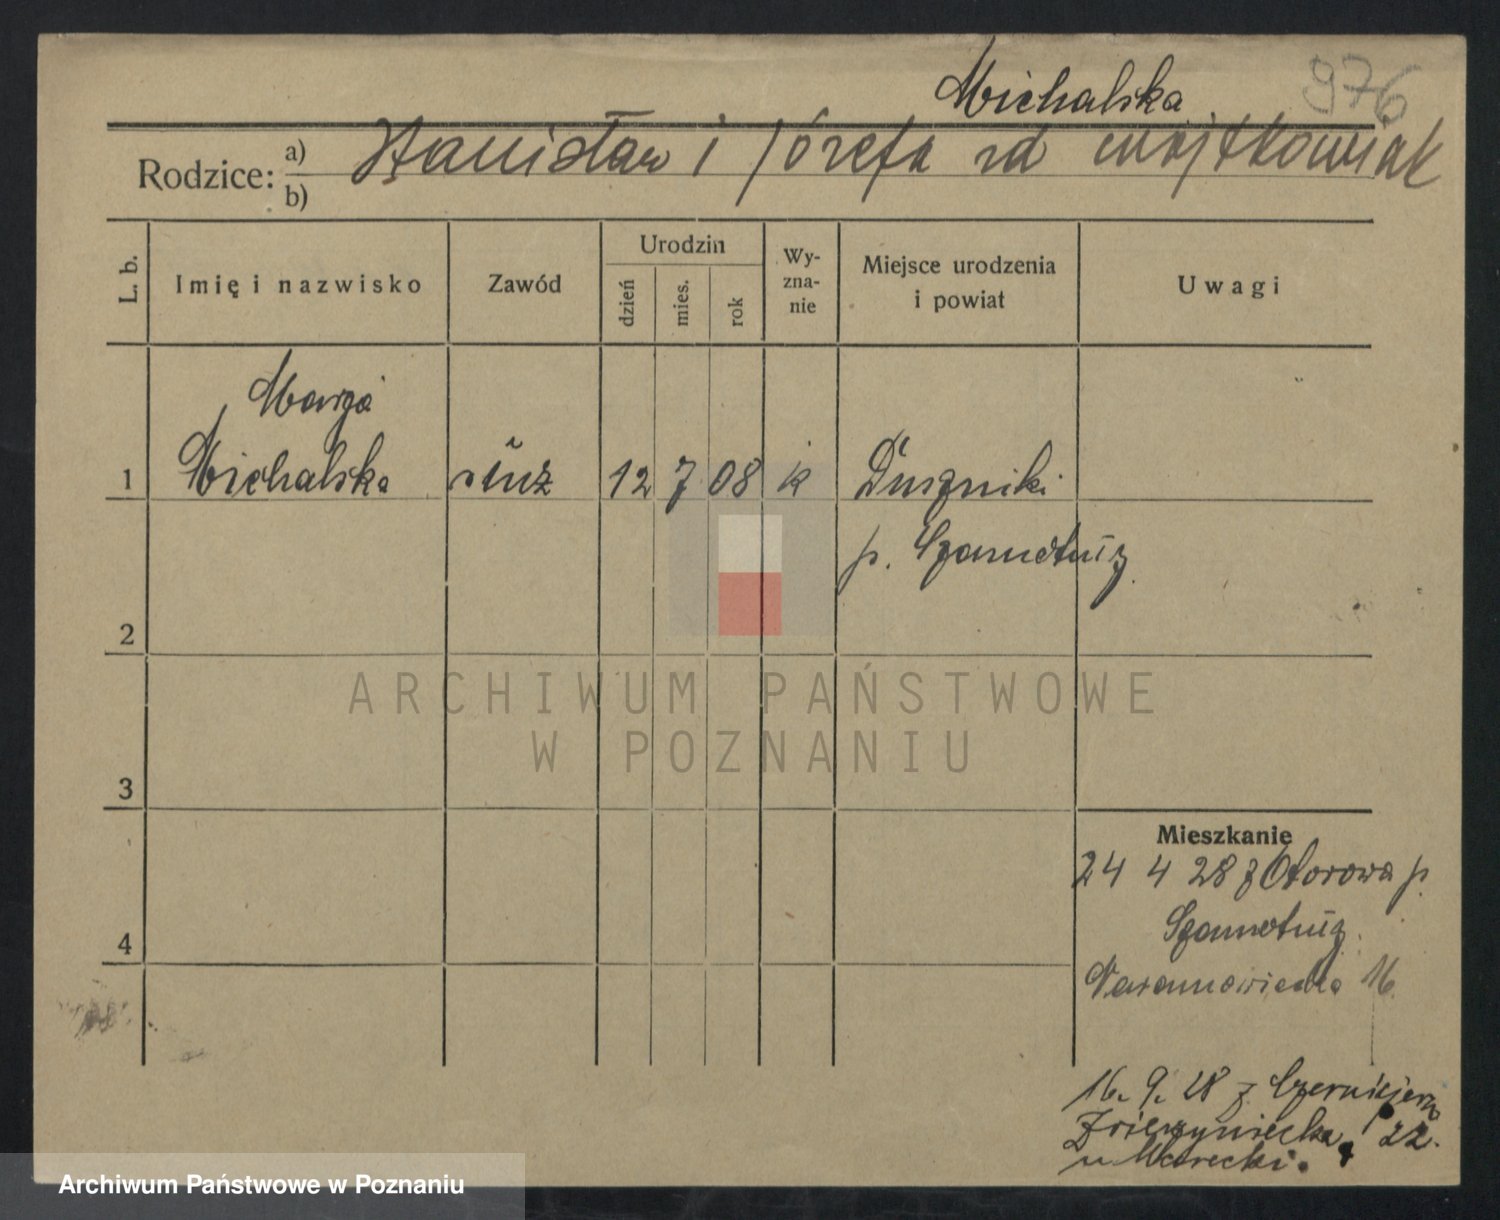 Michalska
976
Rodzice: a) Stanisław i Józefa zd Wojtkowiak
b)
L. b.
Imię i nazwisko
Zawód
Urodzin
dzień
mies.
rok
Wy-
zna-
nie
Miejsce urodzenia
i powiat
Uwagi
Marja
1 Michalska służ 12 7 08 k Duszniki
p. Szamotuły
2
3
4
Mieszkanie
24 4 28 z Otorowa p.
Szamotuły
16
16. 9. 28 z Czerniejewa
Zwierzyniecka 22.
u
ARCHIWUM PAŃSTWOWE
W POZNANIU
Archiwum Państwowe w Poznaniu